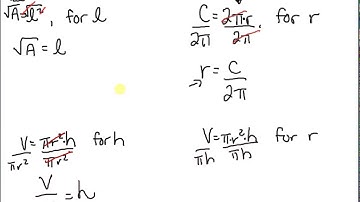 √A = √l² , for l
√A = l
C/2π = 2π·r/2π for r
→ r = C/2π
V/πr² = πr²·h/πr² for h
V/ = h
V/πh = π·r²·h/πh for r